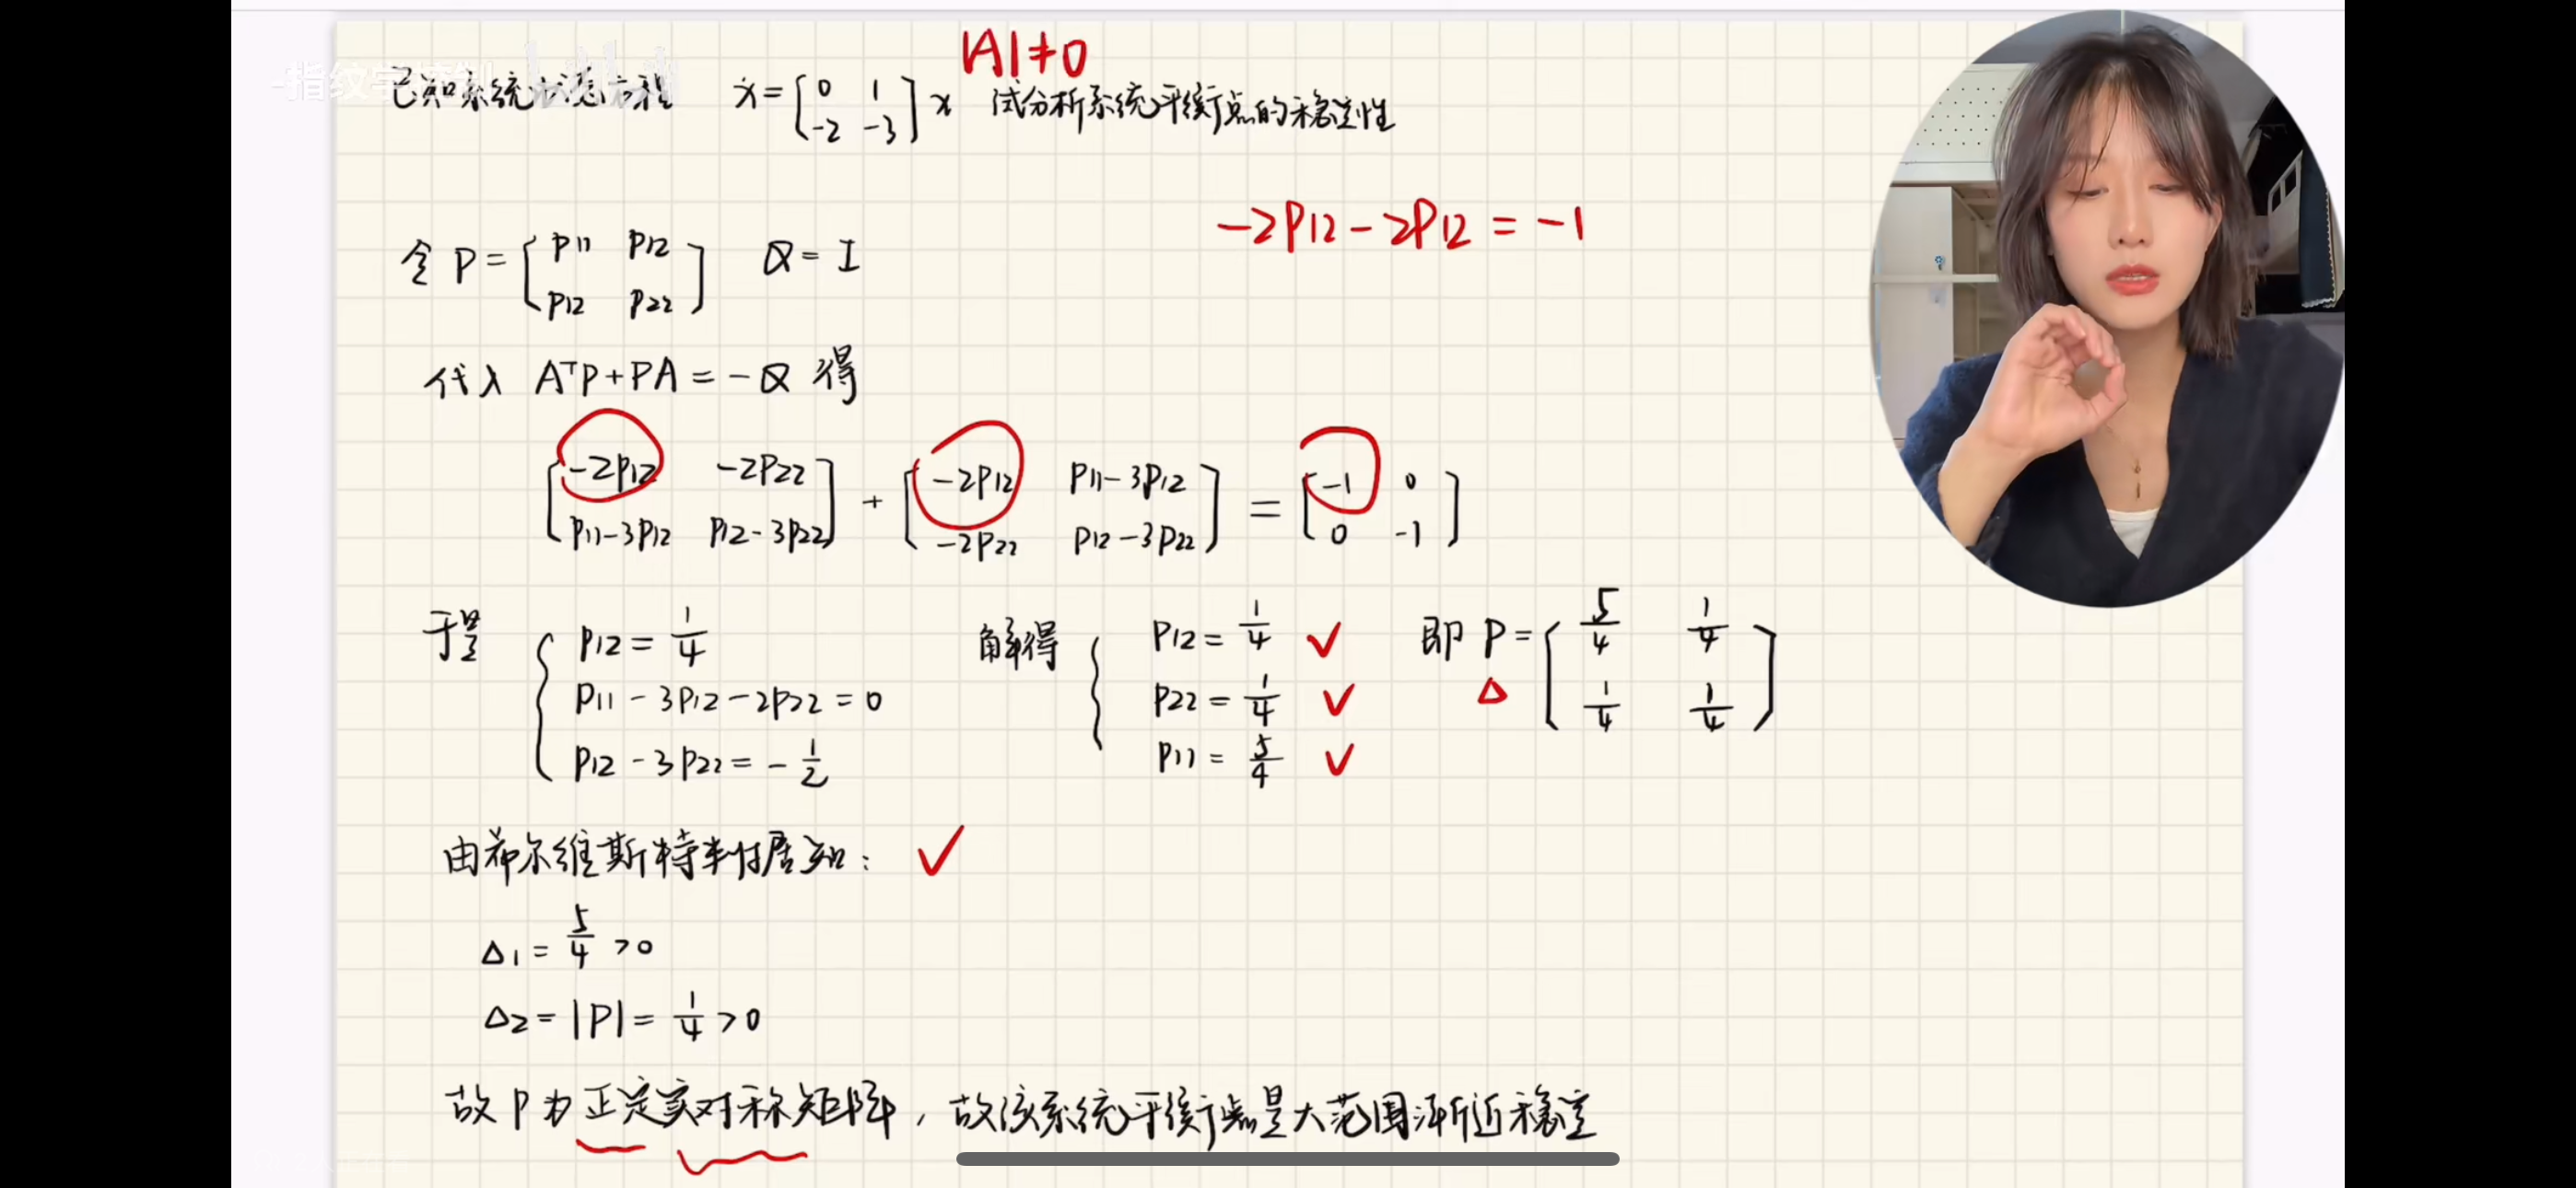 |A|≠0
已知系统状态方程 ẋ=[0 1; -2 -3]x 试分析系统平衡点的稳定性
-2P12-2P12=-1
令 P=[P11 P12; P12 P22] Q=I
代入 AᵀP+PA=-Q 得
[-2P12 -2P22; P11-3P12 P12-3P22]+[-2P12 P11-3P12; -2P22 P12-3P22]=[-1 0; 0 -1]
于是 { P12=1/4
P11-3P12-2P22=0
P12-3P22=-1/2
解得 { P12=1/4 ✓
P22=1/4 ✓
P11=5/4 ✓
即 P=[5/4 1/4; 1/4 1/4]
Δ
由希尔维斯特判据知: ✓
Δ1=5/4>0
Δ2=|P|=1/4>0
故P为正定实对称矩阵,故该系统平衡点是大范围渐近稳定